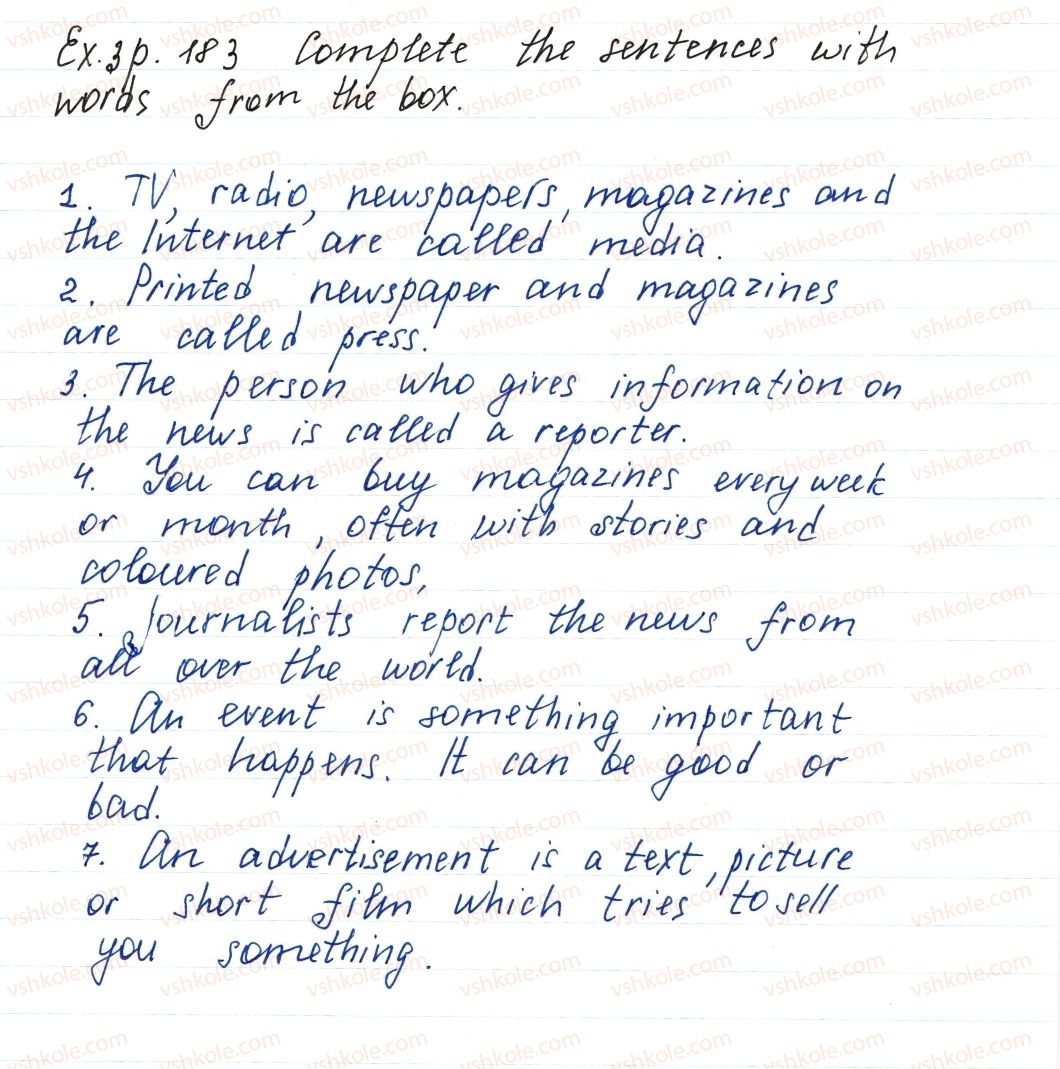 Ex. 3 p. 183 Complete the sentences with
words from the box.
1. TV, radio, newspapers, magazines and
the Internet are called media.
2. Printed newspaper and magazines
are called press.
3. The person who gives information on
the news is called a reporter.
4. You can buy magazines every week
or month, often with stories and
coloured photos,
5. Journalists report the news from
all over the world.
6. An event is something important
that happens. It can be good or
bad.
7. An advertisement is a text, picture
or short film which tries to sell
you something.
vshkole.com